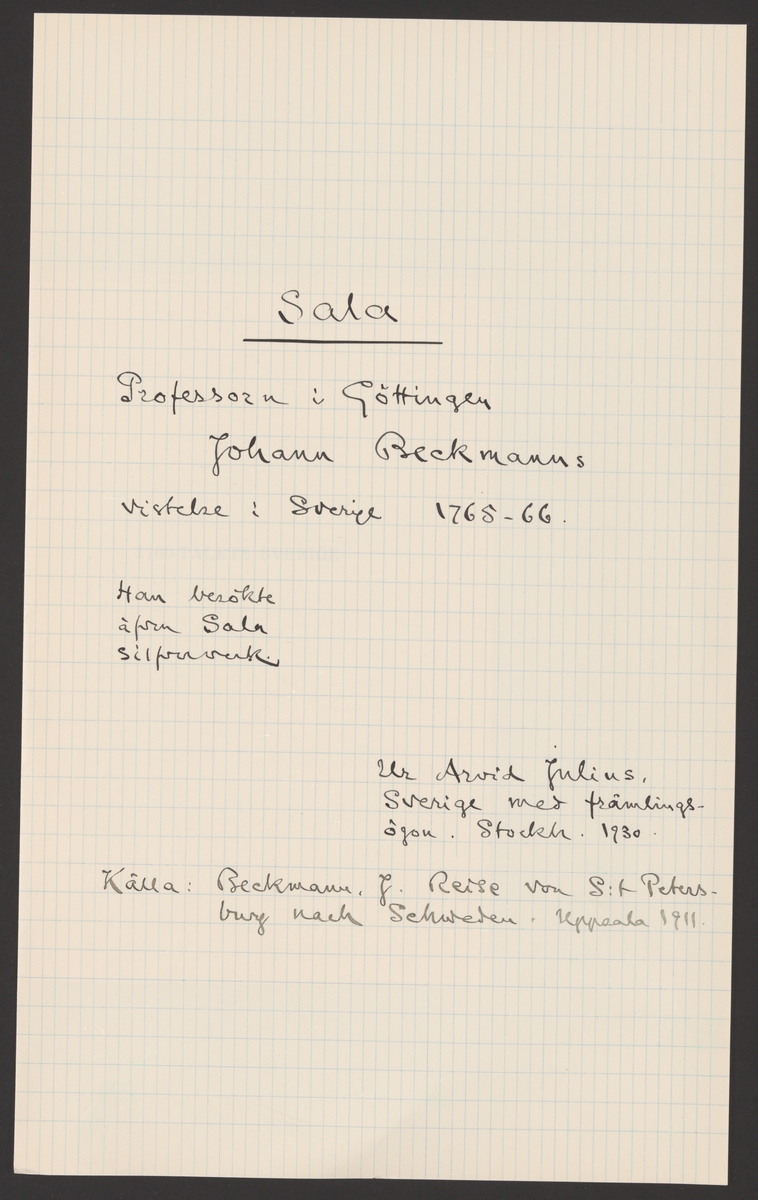 Sala
Professorn i Göttingen
Johann Beckmanns
vistelse i Sverige 1765-66.
Han besökte
äfven Sala
silfververk.
Ur Arvid Julius,
Sverige med främlings-
ögon. Stockh. 1930.
Källa: Beckmann, J. Reise von S:t Peters-
burg nach Schweden. Uppsala 1911.